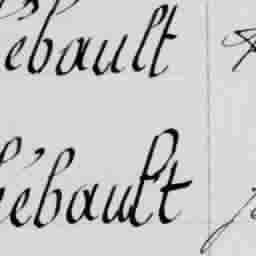 ébault
hébault